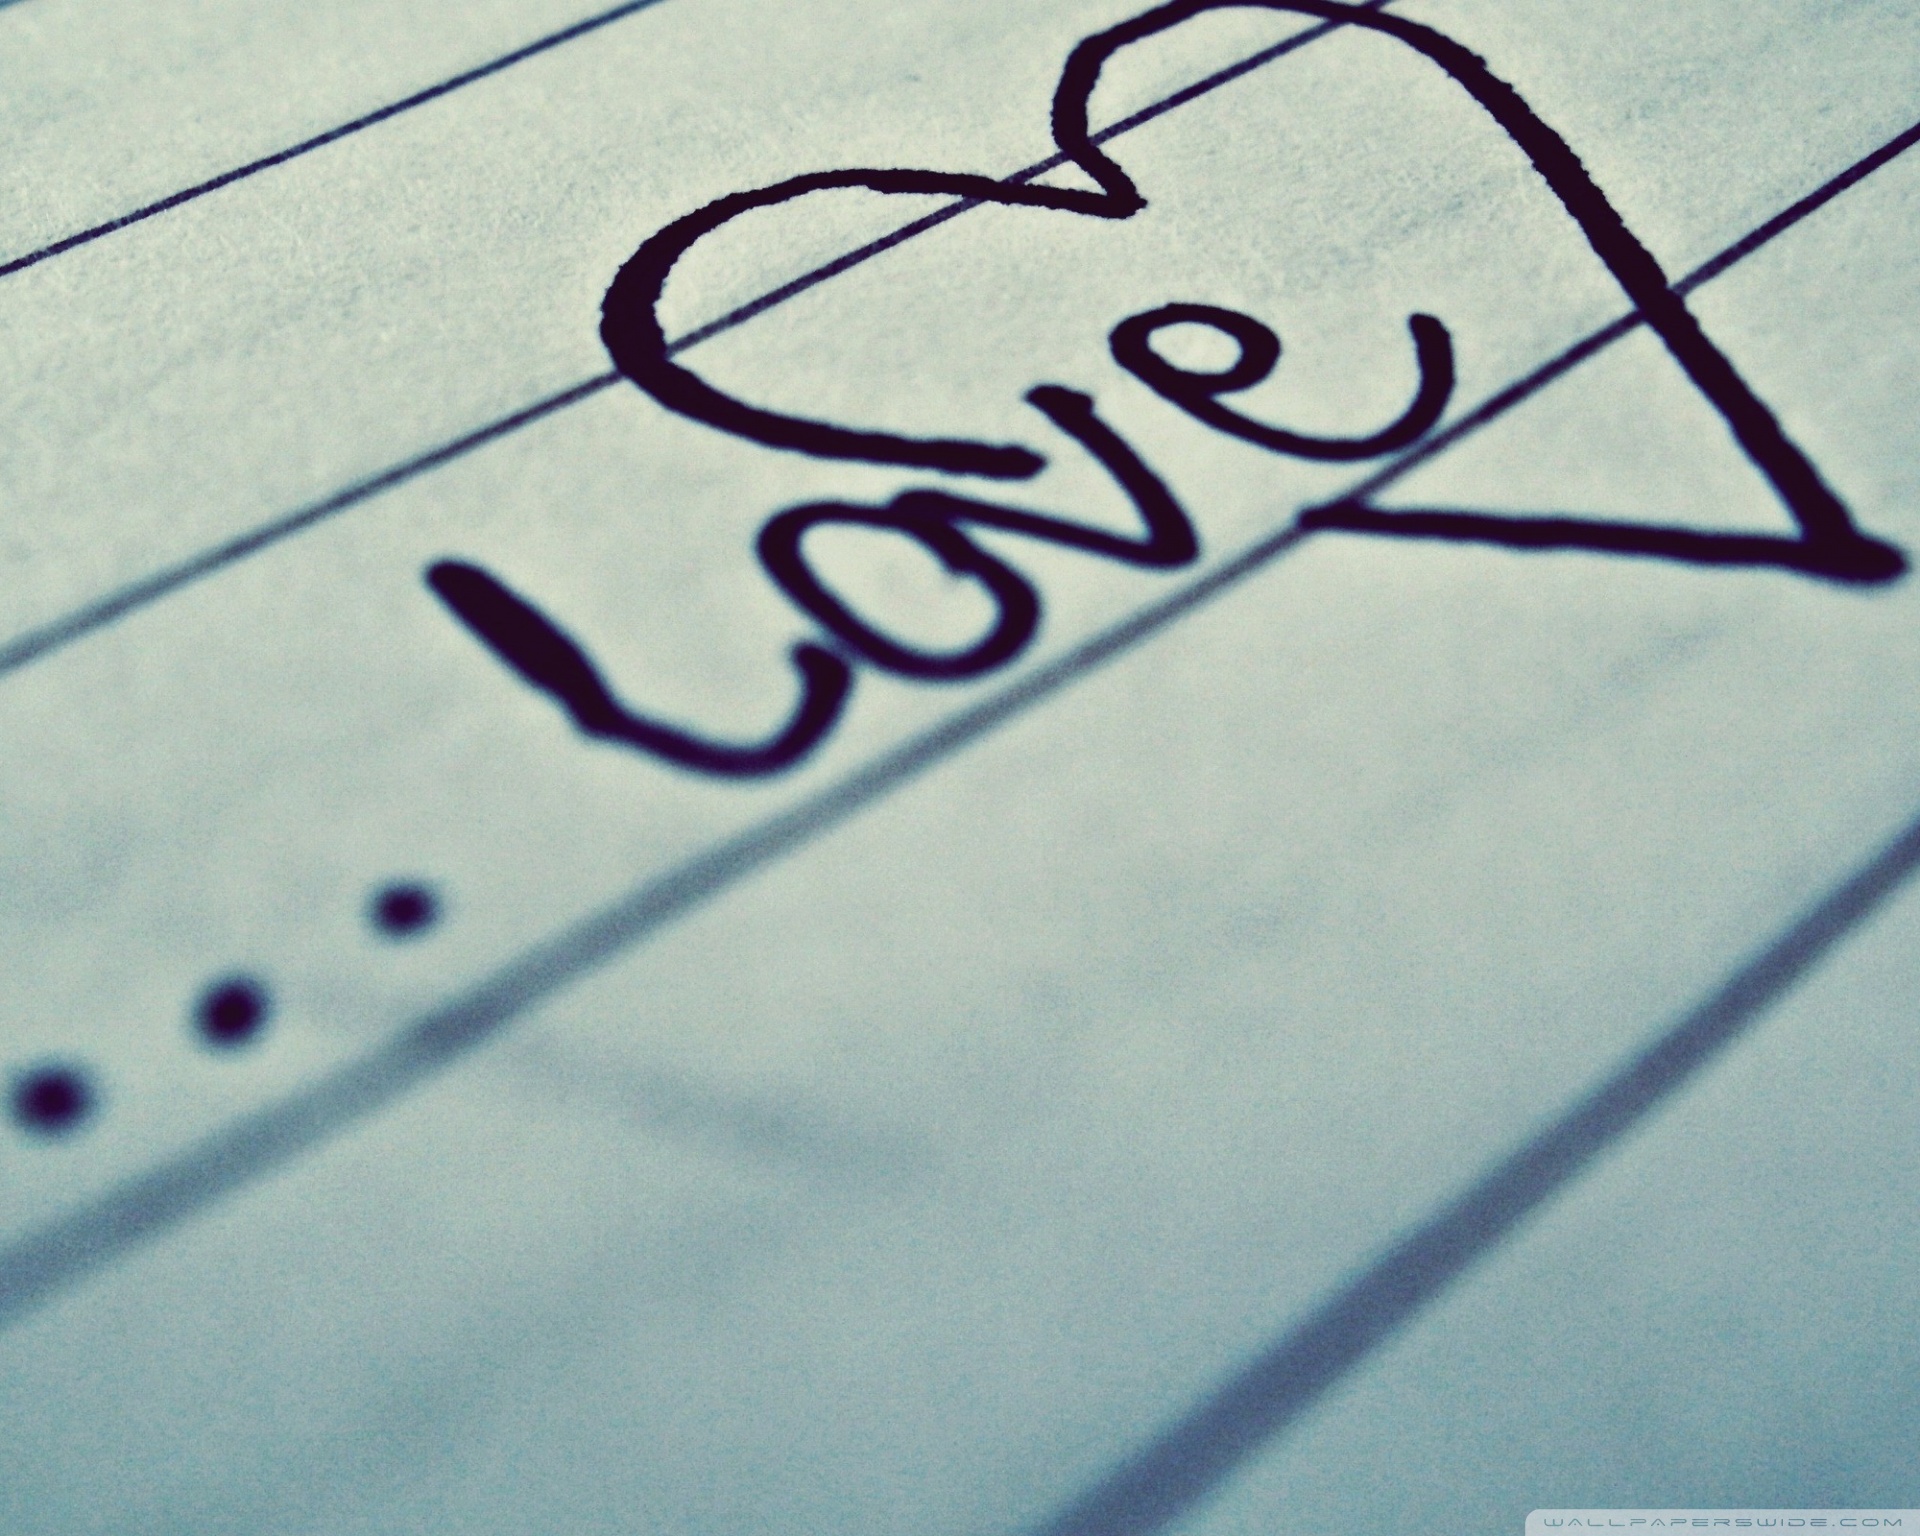 ...Love
WALLPAPERSWIDE.COM